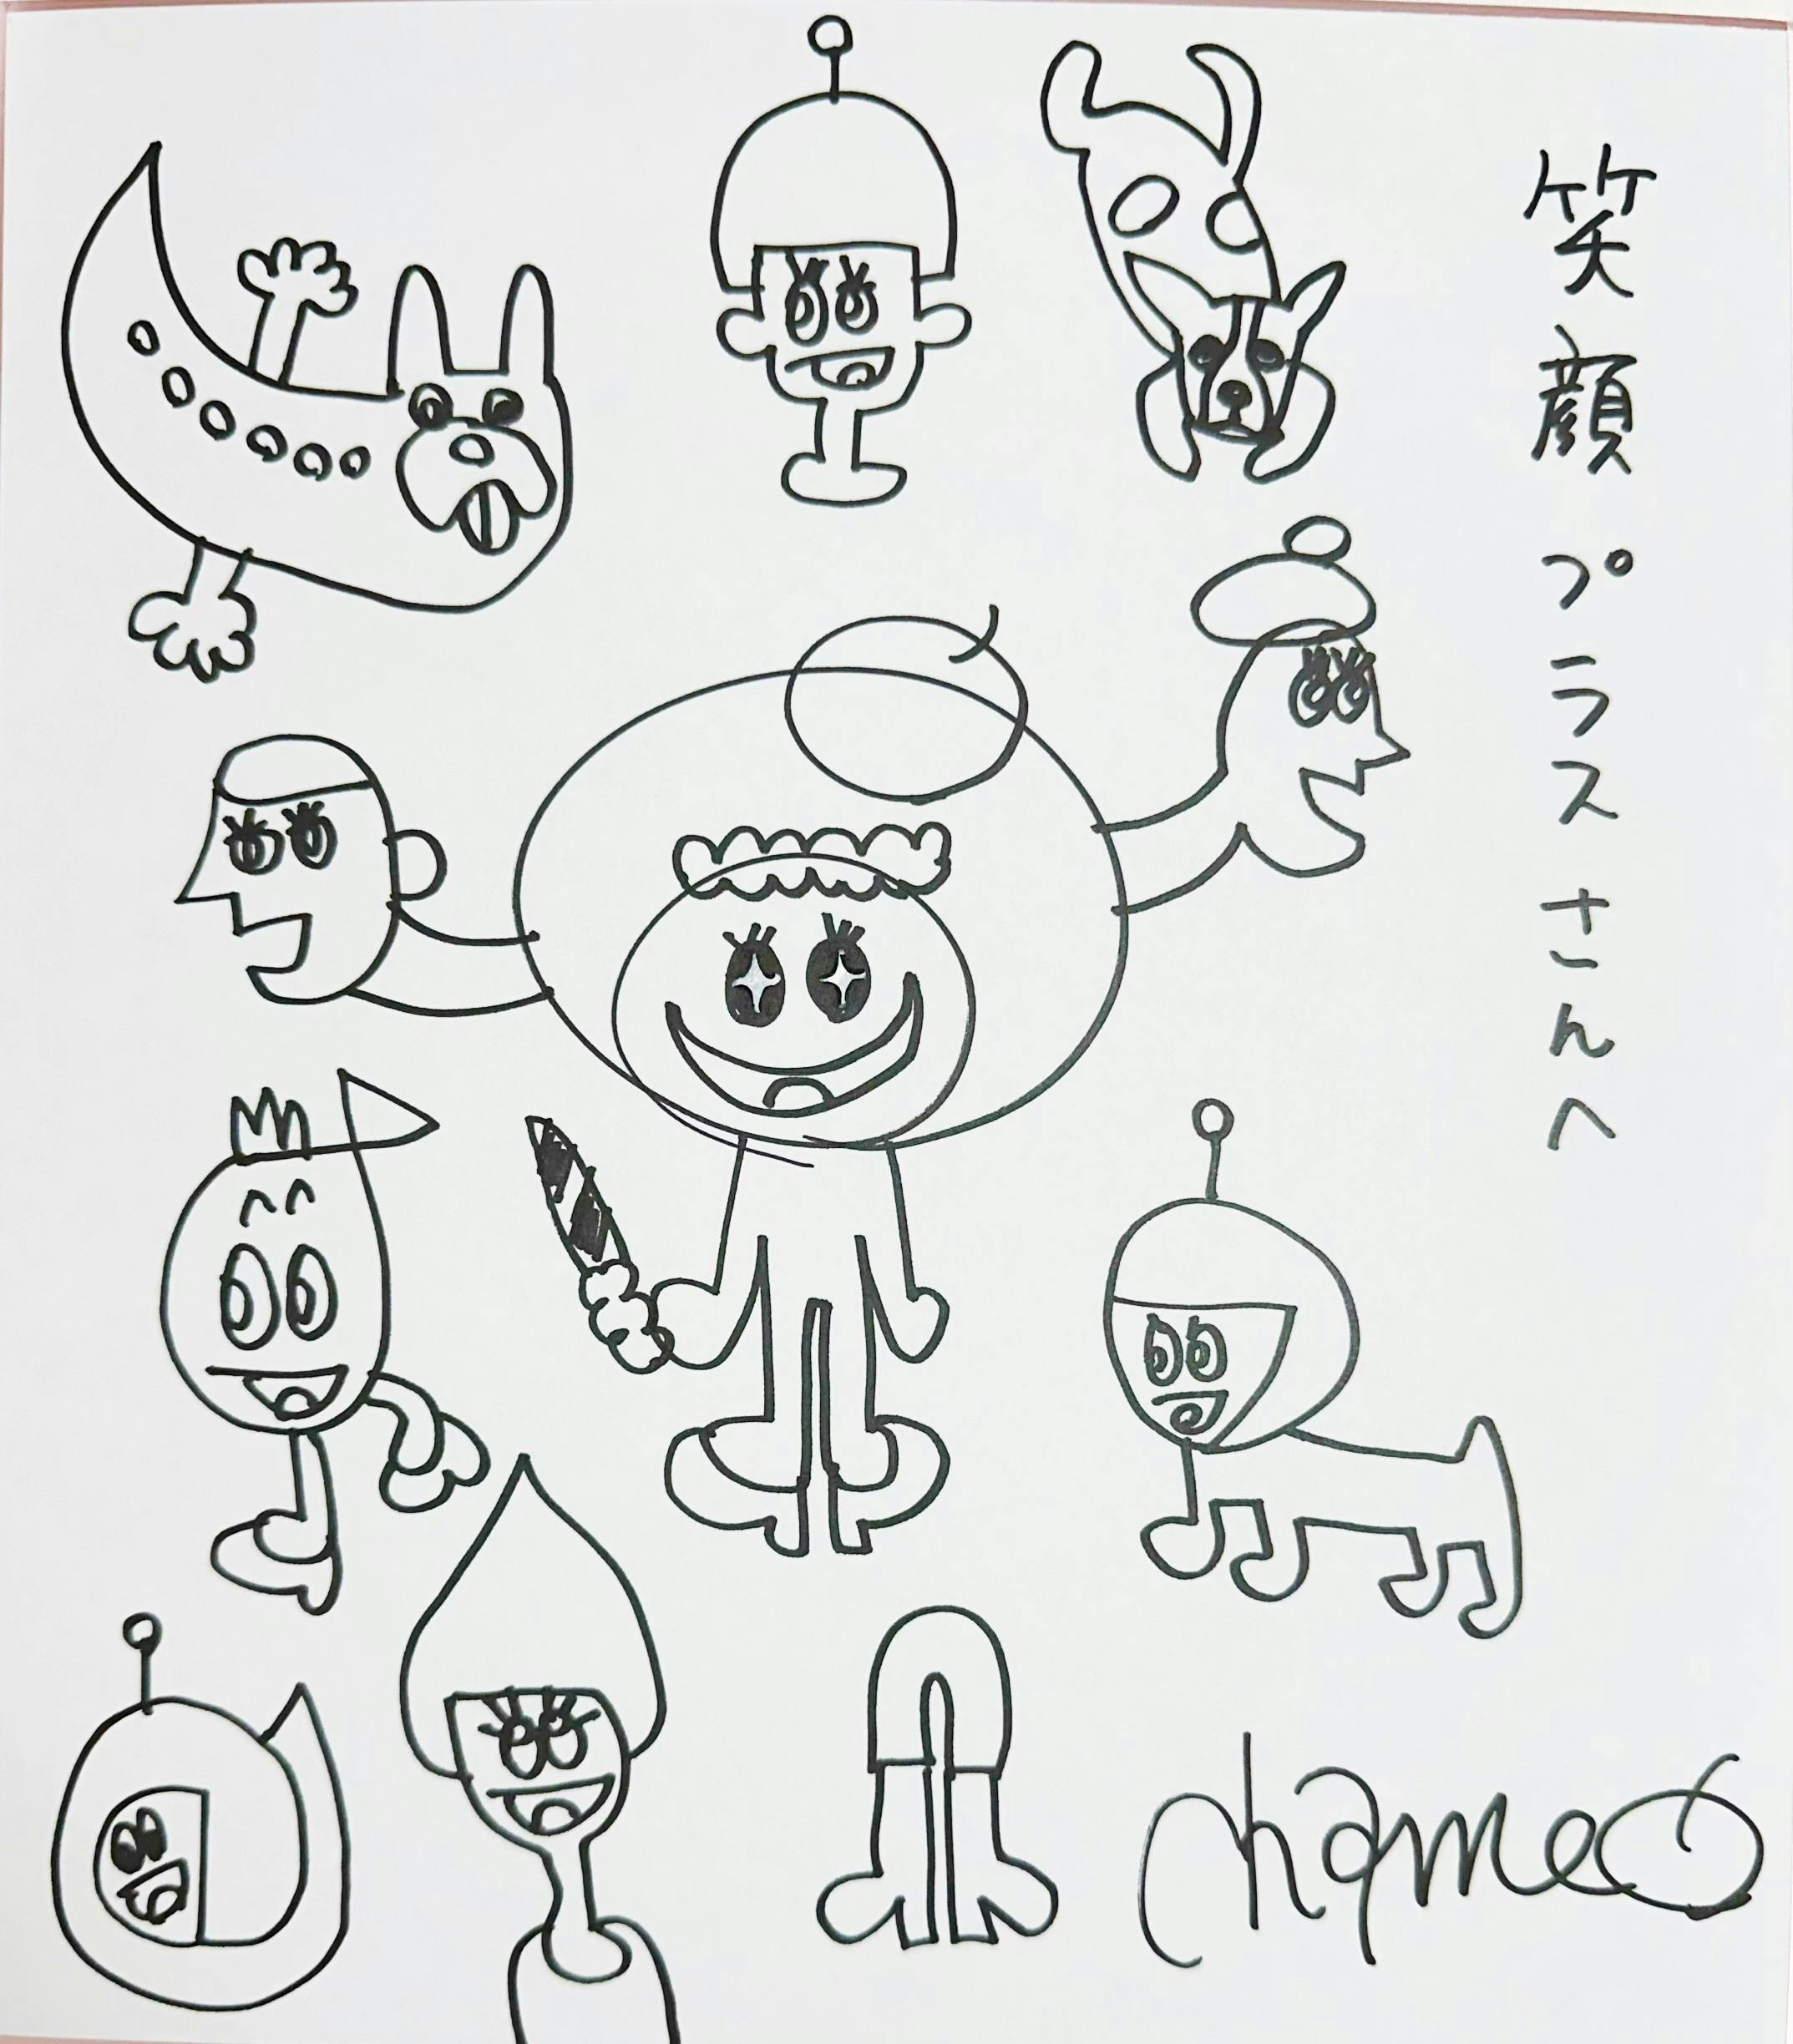 笑顔プラスさんへ
chameo